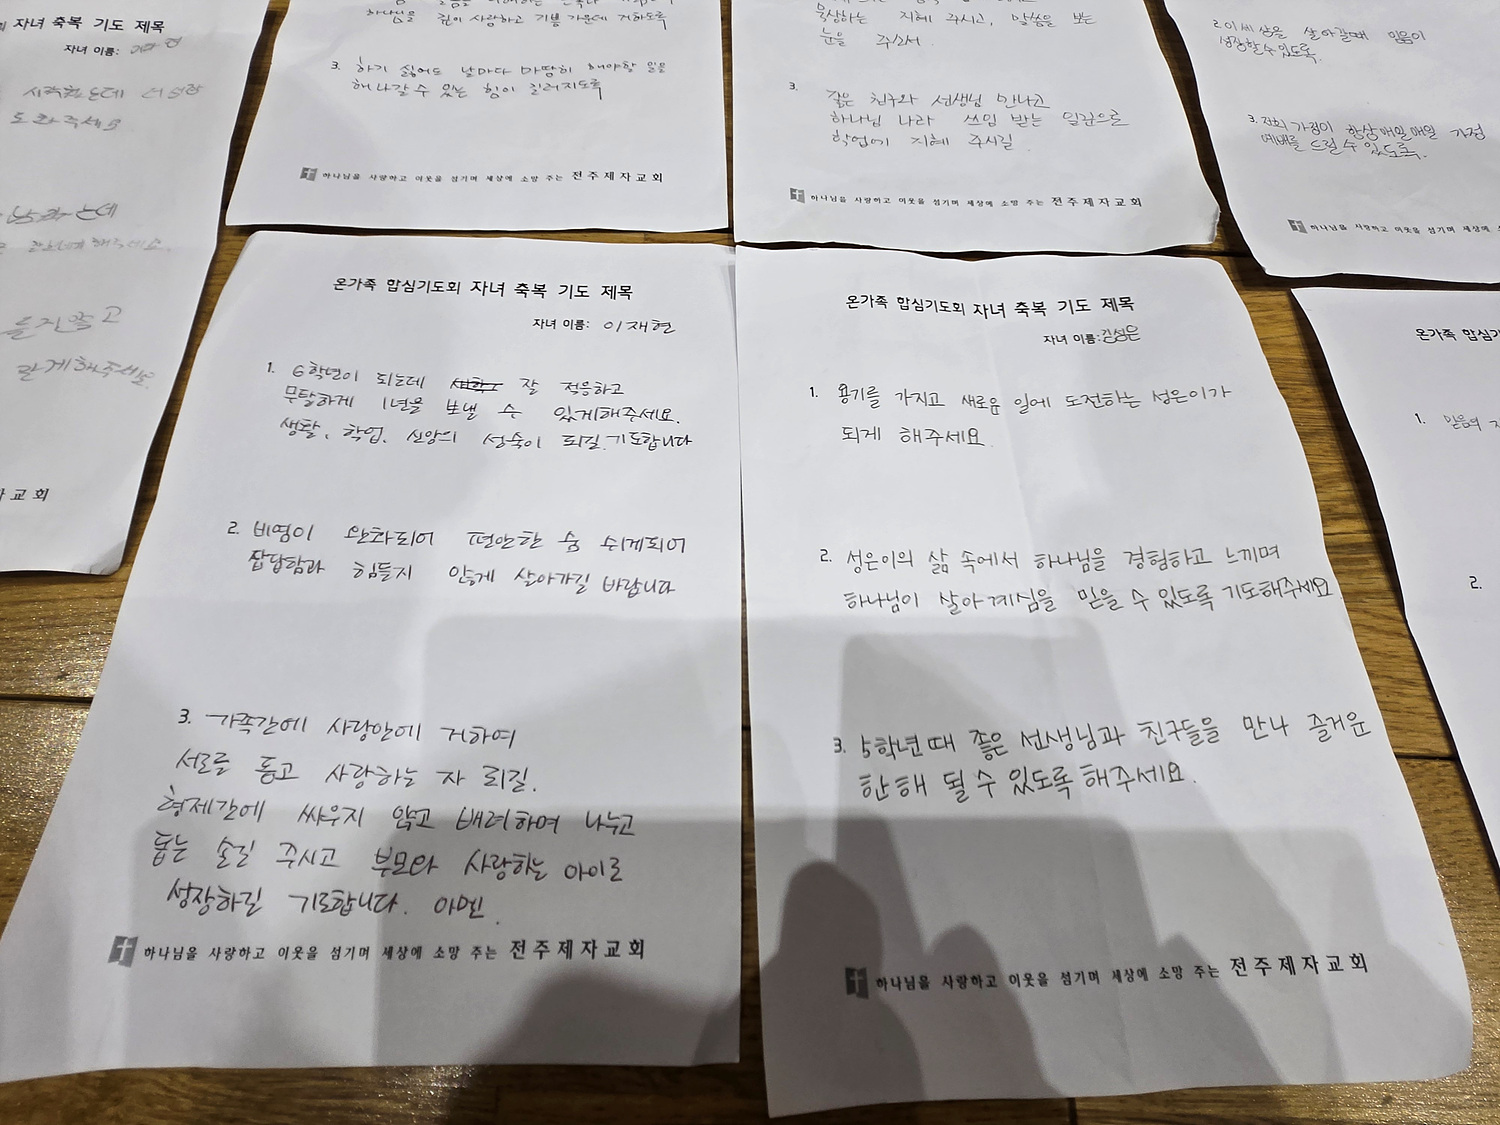 자녀 축복 기도 제목
자녀 이름:
시작하는데
도와주세요
해주세요.
교회
하나님을 깊이 사랑하고 기쁨 가운데 거하도록
3. 하기 싫어도 날마다 마땅히 해야할 일을
해 나갈 수 있는 힘이 길러지도록
하나님을 사랑하고 이웃을 섬기며 세상에 소망 주는 전주제자교회
묵상하는 지혜 주시고, 말씀을 보는
눈을 주소서.
3. 좋은 친구와 선생님 만나고
하나님 나라 쓰임 받는 일꾼으로
학업에 지혜 주시길
하나님을 사랑하고 이웃을 섬기며 세상에 소망 주는 전주제자교회
2. 이 세상을 살아갈때 믿음이
성장할 수 있도록.
3. 저희 가정이 항상 매일매일 가정
예배를 드릴 수 있도록.
하나님을 사랑하고 이웃을 섬기며 세상에
온가족 합심기도회 자녀 축복 기도 제목
자녀 이름: 이재현
1. 6학년이 되는데 잘 적응하고
무탈하게 1년을 보낼 수 있게해주세요.
생활, 학업, 신앙의 성숙이 되길 기도합니다
2. 비염이 완화되어 편안한 숨 쉬게되어
답답함과 힘들지 않게 살아가길 바랍니다
3. 가족간에 사랑안에 거하여
서로를 돕고 사랑하는 자 되길.
형제간에 싸우지 않고 배려하여 나누고
돕는 손길 주시고 부모와 사랑하는 아이로
성장하길 기도합니다. 아멘.
하나님을 사랑하고 이웃을 섬기며 세상에 소망 주는 전주제자교회
온가족 합심기도회 자녀 축복 기도 제목
자녀 이름: 김성은
1. 용기를 가지고 새로운 일에 도전하는 성은이가
되게 해주세요.
2. 성은이의 삶 속에서 하나님을 경험하고 느끼며
하나님이 살아계심을 믿을 수 있도록 기도해주세요
3. 5학년때 좋은 선생님과 친구들을 만나 즐거운
한해 될 수 있도록 해주세요.
하나님을 사랑하고 이웃을 섬기며 세상에 소망 주는 전주제자교회
온가족
1. 믿음의
2.